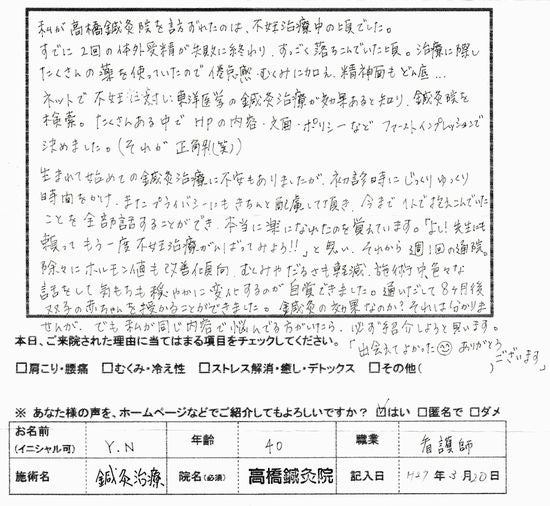 私が高橋鍼灸院を訪ずれたのは、不妊治療中の頃でした。
すでに2回の体外受精が失敗に終わり、すっごく落ちこんでいた頃。治療に際し
たくさんの薬を使っていたので倦怠感・むくみに加え、精神面もどん底…
ネットで不妊に対し東洋医学の鍼灸治療が効果あると知り、鍼灸院を
検索。たくさんある中でHPの内容・文面・ポリシーなどファーストインプレッションで
決めました。(それが正解(笑))
生まれて始めての鍼灸治療に不安もありましたが、初診時にじっくりゆっくり
時間をかけ、またプライバシーにもきちんと配慮して頂き、今まで1人で抱えこんでいた
ことを全部話することができ、本当に楽になれたのを覚えています。「よし!先生にも
頼ってもう一度不妊治療がんばってみよう!!」と思い、それから週1回の通院。
徐々にホルモン値も改善傾向、むくみやだるさも軽減、施術中色々な
話をして気もちも穏やかに変化するのが自覚できました。通いだして8ヶ月後
双子の赤ちゃんを授かることができました。鍼灸の効果なのか?それは分かりま
せんが、でも私が同じ内容で悩んでる方がいたら、必ず紹介しようと思います。
「出会えてよかった ありがとう
ございます」
本日、ご来院された理由に当てはまる項目をチェックしてください。
□肩こり・腰痛 □むくみ・冷え性 □ストレス解消・癒し・デトックス □その他( )
※ あなた様の声を、ホームページなどでご紹介してもよろしいですか? ☑はい □匿名で □ダメ
お名前 (イニシャル可) Y.N 年齢 40 職業 看護師
施術名 鍼灸治療 院名(必須) 高橋鍼灸院 記入日 H27年3月20日